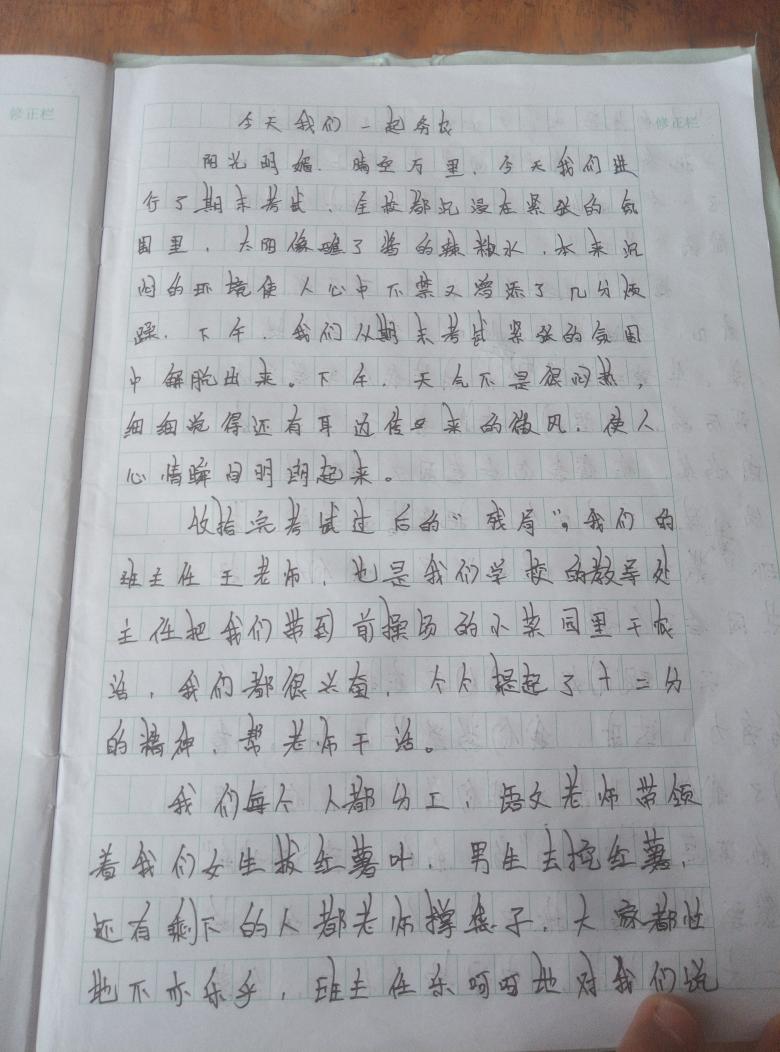 修正栏
修正栏
今天我们一起务农
阳光明媚、晴空万里,今天我们进
行了期末考试,全校都沉浸在紧张的氛
围里,太阳像蘸了酱的辣椒水,本来沉
闷的环境使人心中不禁又增添了几分烦
躁,下午,我们从期末考试紧张的氛围
中解脱出来。下午,天气不是很闷热,
细细觉得还有耳边传来的微风,使人
心情瞬间明朗起来。
收拾完考试过后的“残局”,我们的
班主任王老师,也是我们学校的教导处
主任把我们带到前操场的小菜园里干农
活,我们都很兴奋,个个提起了十二分
的精神,帮老师干活。
我们每个人都分工,语文老师带领
着我们女生拔红薯叶,男生去挖红薯,
还有剩下的人都老师撑袋子,大家都忙
地不亦乐乎,班主任乐呵呵地对我们说